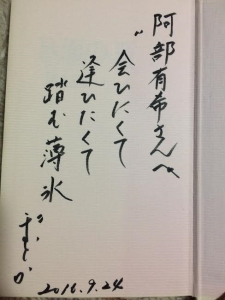 阿部有希さんへ
会ひたくて
逢ひたくて
踏む薄氷
まどか
2016.9.24